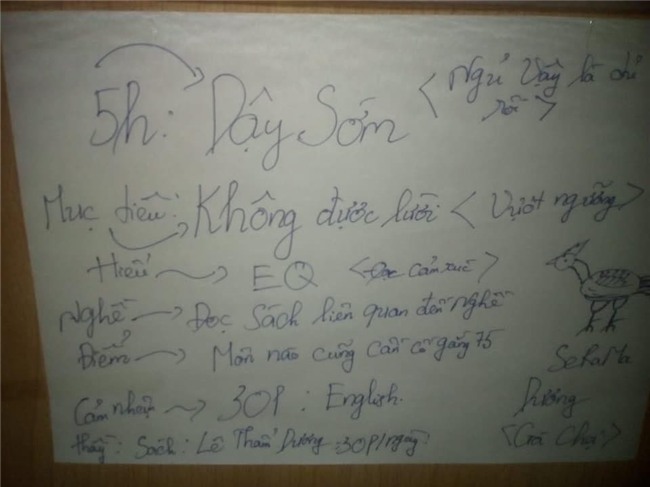 5h: Dậy Sớm < Ngủ Vậy là đủ rồi >
Mục tiêu: Không được lười < Vượt ngưỡng >
Hiểu → EQ < Đọc cảm xúc >
Nghề → Đọc Sách liên quan đến nghề
Điểm → Môn nào cũng cần cố gắng 75
SeRaMa
Cảm nhận → 30P : English.
Dương
thấy: Sách: Lê Thẩm Dương :30P/ngày